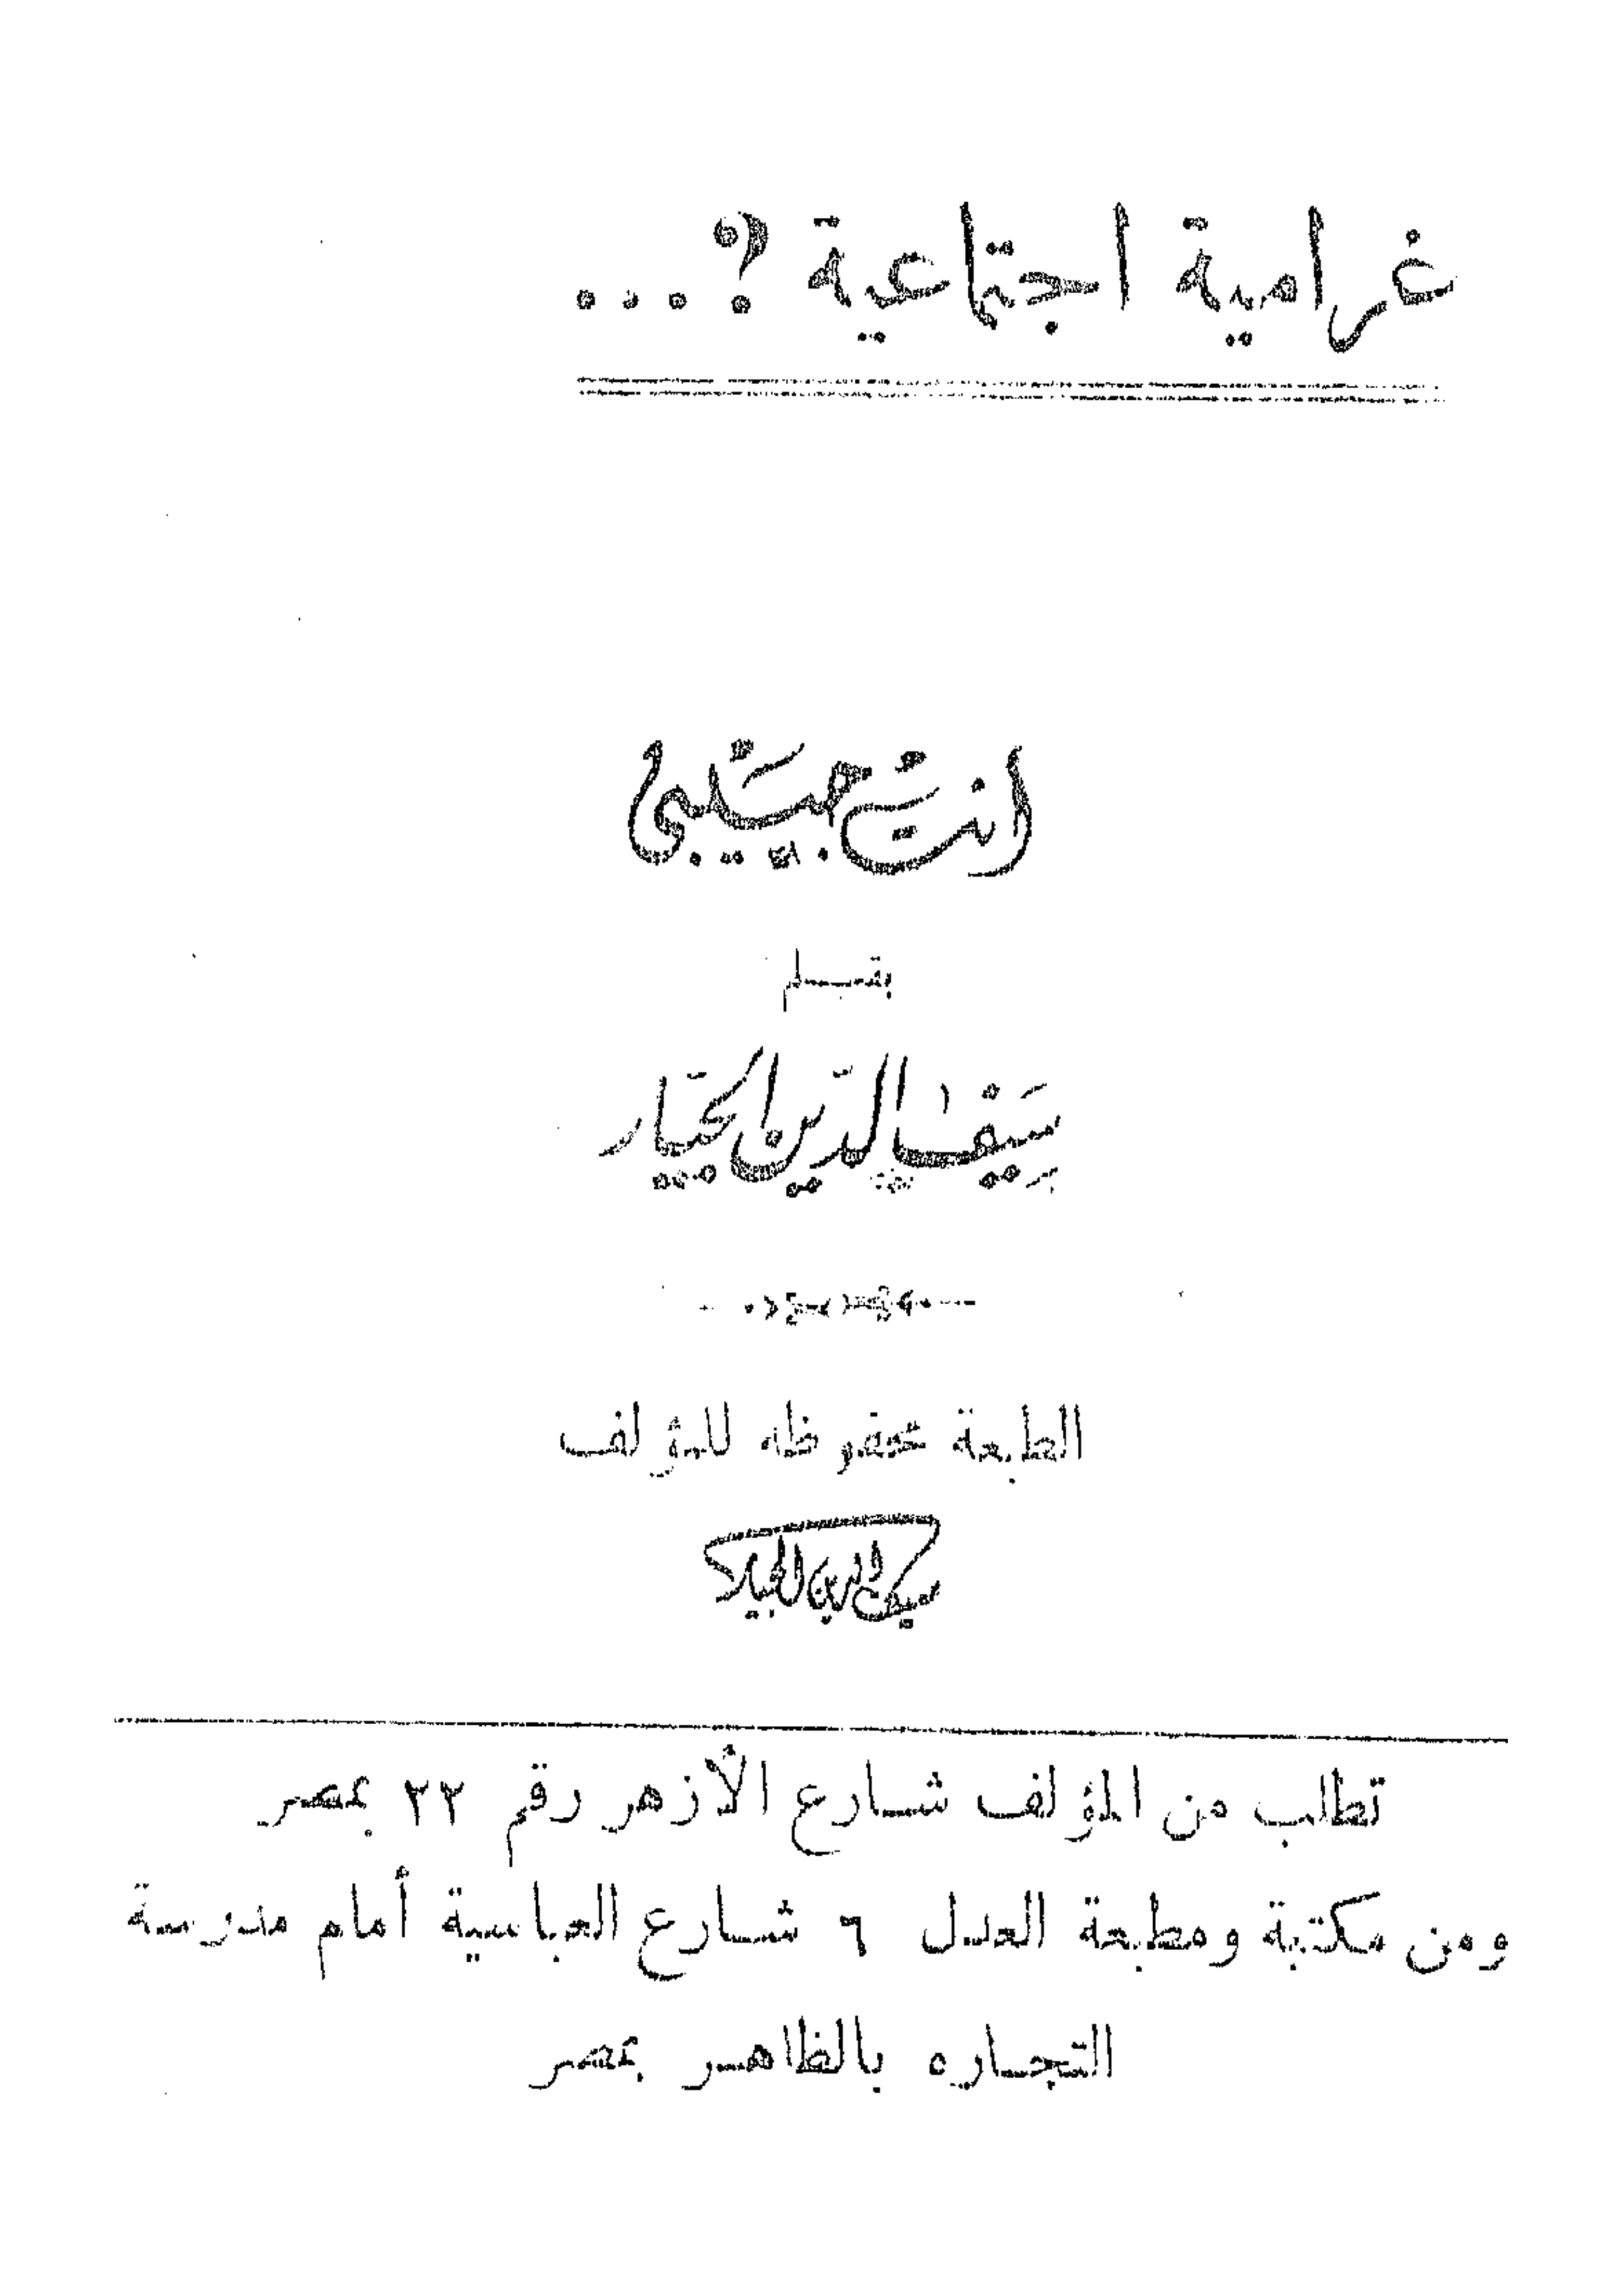 غرامية اجتماعية ؟ . . .
انت حبيبي
بقلم
سيف الدين
الطبعة محفوظه للمؤلف
سيف الدين
تطلب من المؤلف شارع الأزهر رقم ٢٢ بمصر
ومن مكتبة ومطبعة العدل ٦ شارع العباسية أمام مدرسة
التجاره بالظاهر بمصر